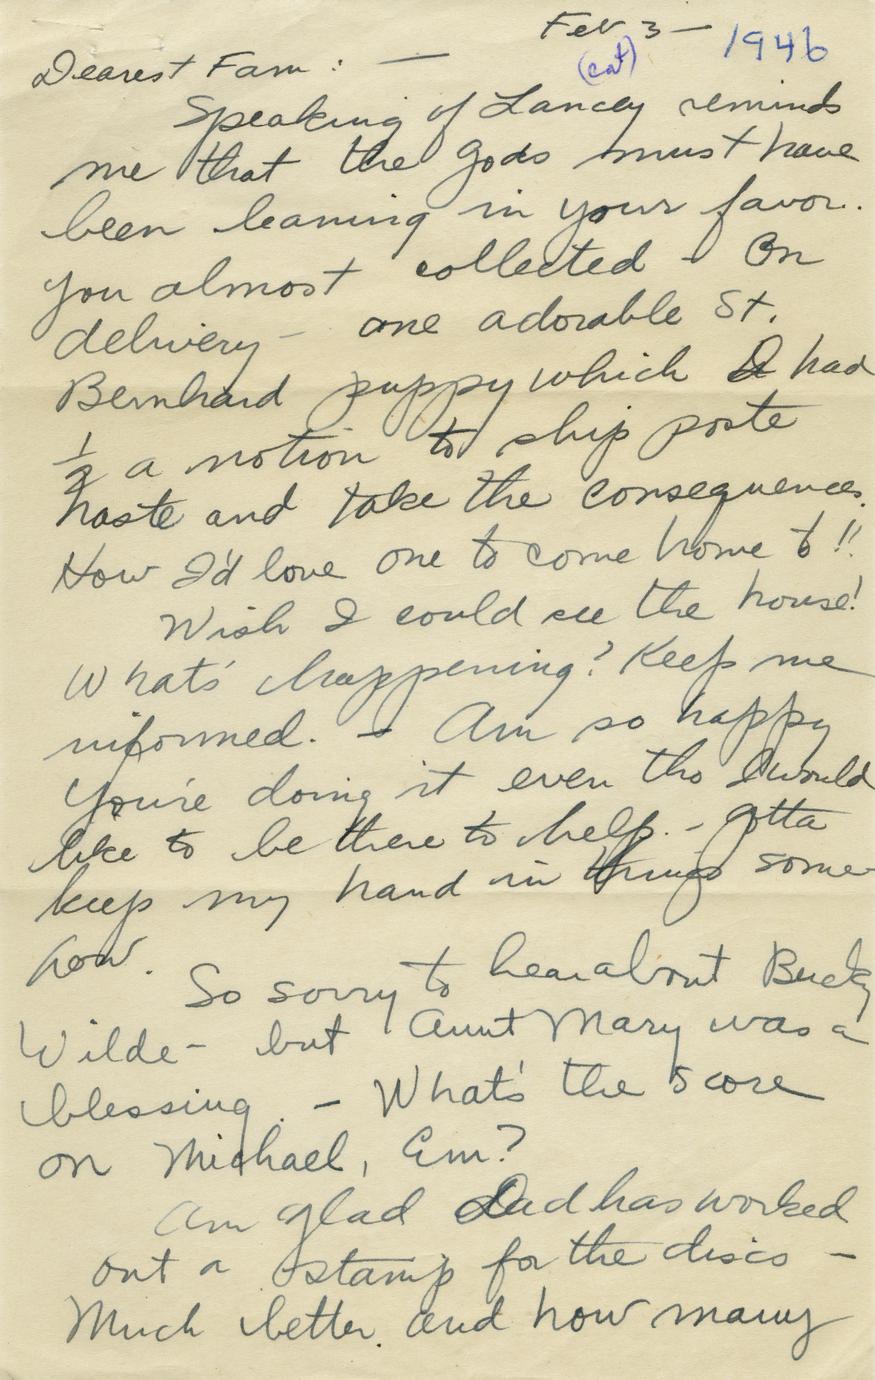 Feb 3 — 1946
Dearest Fam : —
(cat)
Speaking of Lancey reminds
me that the gods must have
been leaning in your favor.
You almost collected - On
delivery - one adorable St.
Bernhard puppy which I had
½ a notion to ship poste
haste and take the consequences.
How I'd love one to come home to!!
Wish I could see the house!
What's happening? Keep me
informed. - Am so happy
You're doing it even tho I would
like to be there to help. - gotta
keep my hand in things some-
how.
So sorry to hear about Bucky
Wilde - but Aunt Mary was a
blessing. - What's the score
on Michael, Em?
Am glad Dad has worked
out a stamp for the discs -
Much better and how many